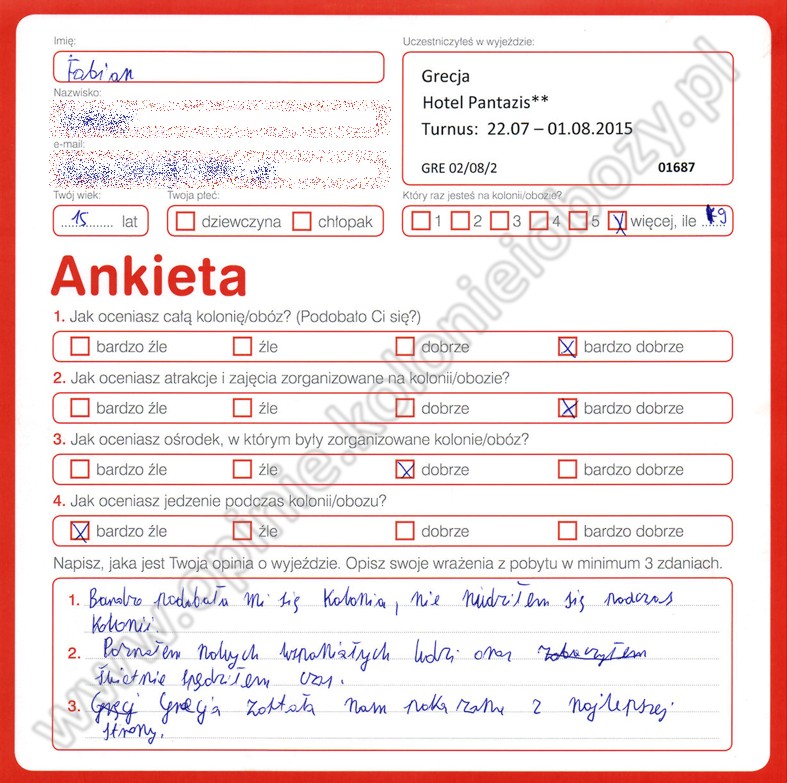 Imię:
Fabian
Nazwisko:
e-mail:
Uczestniczyłeś w wyjeździe:
Grecja
Hotel Pantazis**
Turnus: 22.07 – 01.08.2015
GRE 02/08/2 01687
Twój wiek:
15 lat
Twoja płeć:
dziewczyna chłopak
Który raz jesteś na kolonii/obozie?
1 2 3 4 5 więcej, ile 9
Ankieta
1. Jak oceniasz całą kolonię/obóz? (Podobało Ci się?)
bardzo źle źle dobrze bardzo dobrze
2. Jak oceniasz atrakcje i zajęcia zorganizowane na kolonii/obozie?
bardzo źle źle dobrze bardzo dobrze
3. Jak oceniasz ośrodek, w którym były zorganizowane kolonie/obóz?
bardzo źle źle dobrze bardzo dobrze
4. Jak oceniasz jedzenie podczas kolonii/obozu?
bardzo źle źle dobrze bardzo dobrze
Napisz, jaka jest Twoja opinia o wyjeździe. Opisz swoje wrażenia z pobytu w minimum 3 zdaniach.
1. Bardzo podobała mi się kolonia, nie nudziłem się podczas
kolonii.
2. Poznałem nowych wspaniałych ludzi oraz zobaczyłem
świetnie spędziłem czas.
3. Gręcj Grecja została nam pokazana z najlepszej
strony.
www.opinie.kolonieiobozy.pl